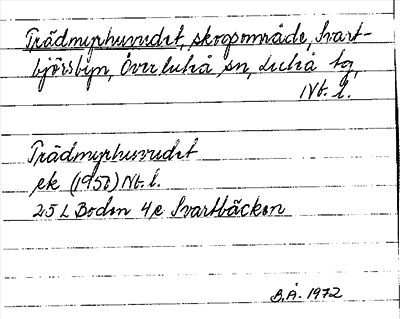 Trädmyrhuvudet, skogsområde, Svart-
björsbyn, Överluleå sn, Luleå tg,
Nb. l.
Trädmyrhuvudet
ek (1950) Nb. l.
25 L Boden 4e Svartbäcken
B.Å. 1972